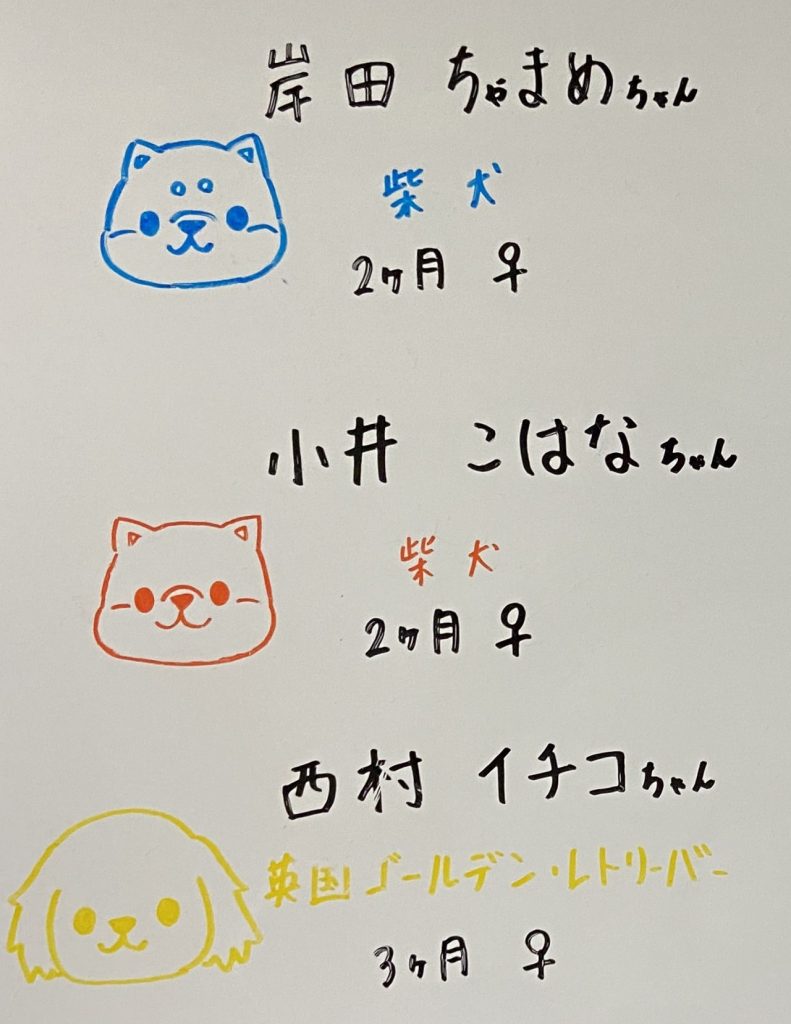 岸田 ちゃまめちゃん
柴犬
2ヶ月 ♀
小井 こはなちゃん
柴犬
2ヶ月 ♀
西村 イチコちゃん
英国ゴールデン・レトリーバー
3ヶ月 ♀